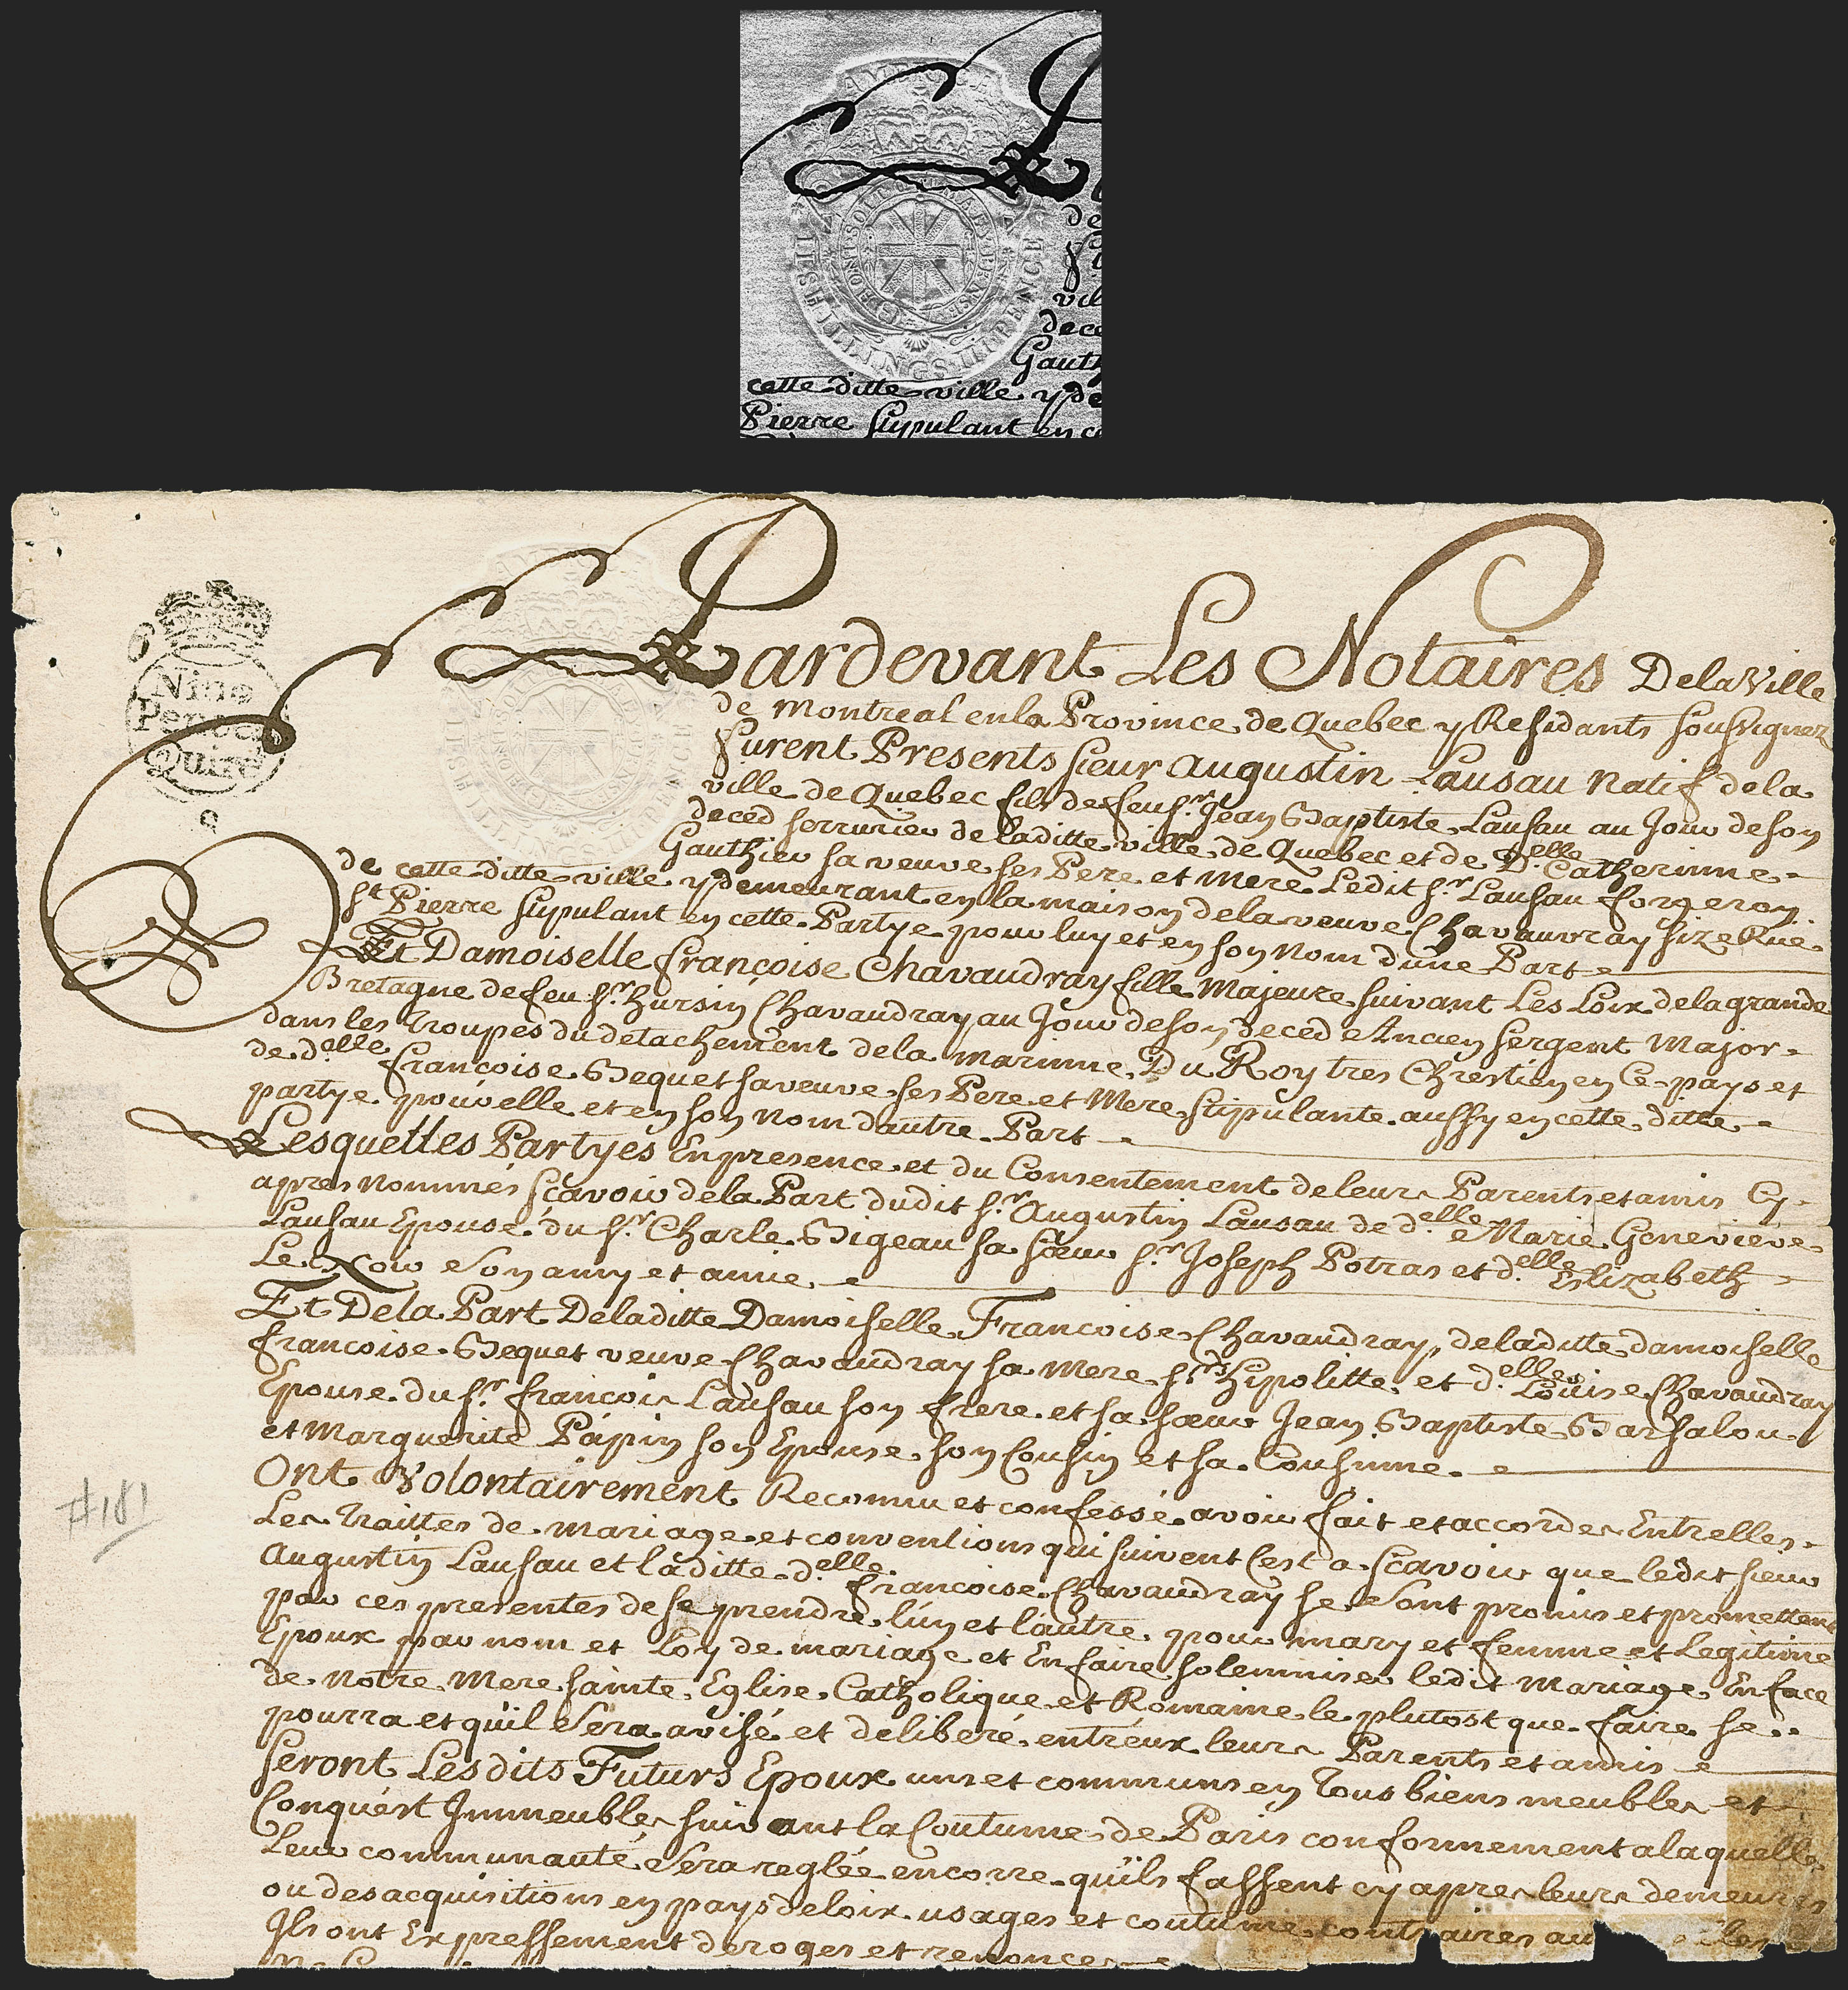 AMERICA
HONI SOIT QUI MAL Y PENSE
II SHILLINGS III PENCE
de
vil
dece
Gauth
cette ditte ville y de
Pierre stypulant en ce
Nine
Pence
Quire
Pardevant Les Notaires De la Ville
de Montreal en la Province de Quebec y Residants soussignez
furent Presents sieur augustin Lausau Natif de la
ville de Quebec fils de feu sr. Jean Baptiste Lausau au Jour de son
deced serrurier de laditte ville de Quebec et de Delle. Catherinne
Gauthier sa veuve ses Pere et Mere Ledit sr. Lausau forgeron
de cette ditte ville y demeurant en la maison de la veuve Chavauvray size Rue
st Pierre stypulant en cette Partye pour luy et en son Nom d'une Part
Et Damoiselle françoise Chavaudray fille Majeure suivant Les Loix de la grande
Bretagne de feu sr. hursin Chavaudray au Jour de son deced Ancien sergent Major
dans les troupes du detachement de la marinne Du Roy tres Chrestien en Ce pays et
de delle. françoise Bequet sa veuve ses Pere et Mere stipulante aussy en cette ditte
partye pour elle et en son nom d'autre Part
Lesquelles Partyes En presence et du Consentement de leurs Parents et amis Cy
apres Nommés sçavoir de la Part dudit sr. Augustin Lausau de delle. Marie Genevieve
Lausau Epouse du sr. Charle Bigeau sa sœur sr. Joseph Potras et delle. Elizabeth
Le Noir Son amy et amie
Et De la Part De laditte Damoiselle Francoise Chavaudray, de laditte damoiselle
francoise Bequet veuve Chavaudray sa Mere sr. hipolitte et delle. Louise Chavaudray
Epouse du sr. francois Lausau son frere et sa sœur Jean Baptiste Barsalou
et Marguerite Papin son Epouse son Cousin et sa Cousinne
Ont Volontairement Reconnu et confessé avoir fait et accorder Entrelles
Les traittes de mariage et conventions qui suivent C'est a sçavoir que ledit sieur
Augustin Lausau et laditte delle. francoise Chavaudray se sont promis et promettent
par ces presentes de se prendre l'un et l'autre pour mary et femme et Legitime
Epoux par nom et Loy de mariage et En faire solemniser ledit Mariage En face
de Notre Mere sainte Eglise Catholique et Romaine le plutost que faire se
pourra et quil Sera avisé et deliberé entreux leurs Parents et amis
Seront Lesdits Futurs Epoux uns et communs en tous biens meubles et
Conquêst Immeubles suivant la Coutume de Paris conformement a laquelle
Leur communauté Sera reglée encorre quils fassent cy apres leurs demeures
ou des acquisitions en pays de loix usages et coutume contraires au
Ils ont Expressement deroges et renonce
#181